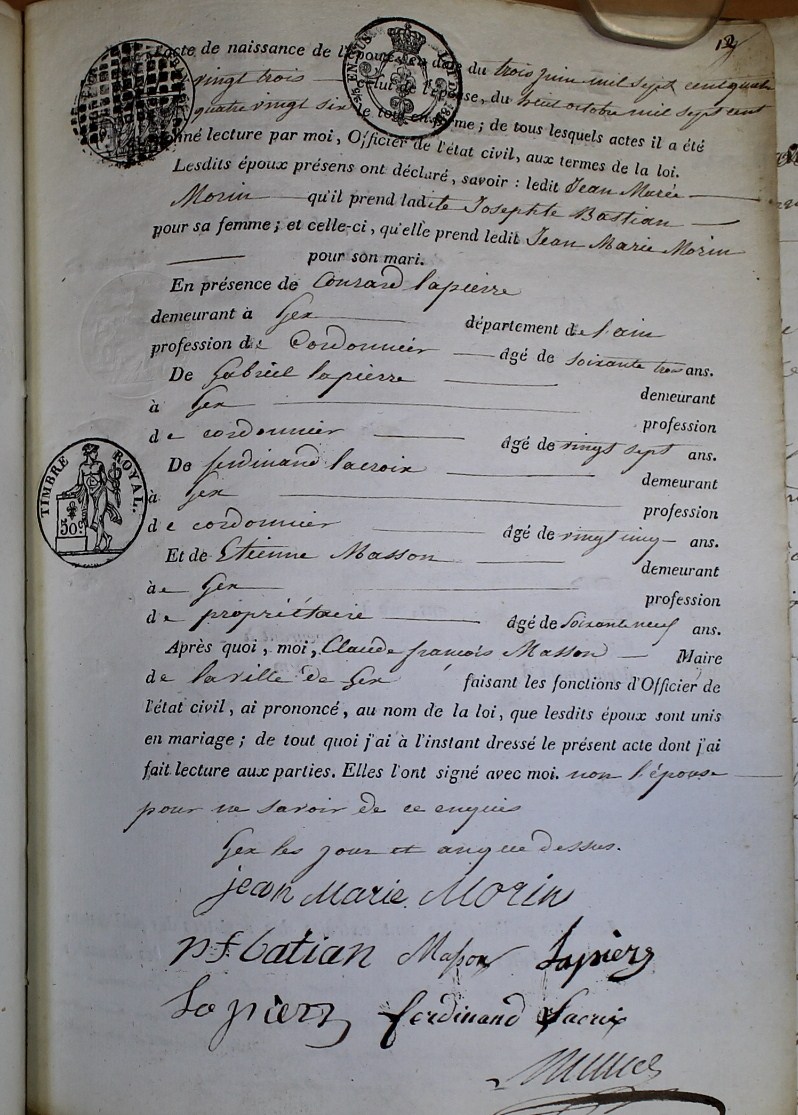 12
acte de naissance de l'époux, en date du trois juin mil sept cent quatre
vingt trois celui de l'épouse, du huit octobre mil sept cent
quatre vingt six le tout en forme ; de tous lesquels actes il a été
donné lecture par moi, Officier de l'état civil, aux termes de la loi.
Lesdits époux présens ont déclaré, savoir : ledit Jean Marie
Morin qu'il prend ladite Josephte Bastian
pour sa femme ; et celle-ci, qu'elle prend ledit Jean Marie Morin
pour son mari.
En présence de Conrard lapierre
demeurant à Gex département de l'ain
profession de Cordonnier âgé de soixante trois ans.
De Gabriel lapierre demeurant
à Gex profession
de cordonnier âgé de vingt sept ans.
De ferdinand lacroix demeurant
à Gex profession
de cordonnier âgé de vingt cinq ans.
Et de Etienne Masson demeurant
à Gex profession
de propriétaire âgé de soixante neuf ans.
Après quoi, moi, Claude françois Masson Maire
de la ville de Gex faisant les fonctions d'Officier de
l'état civil, ai prononcé, au nom de la loi, que lesdits époux sont unis
en mariage ; de tout quoi j'ai à l'instant dressé le présent acte dont j'ai
fait lecture aux parties. Elles l'ont signé avec moi. non l'épouse
pour ne savoir de ce enquis
Gex les jour et an que dessus.
jean Marie Morin
p f batian Masson Lapierre
Lapierre ferdinand Lacroix
TIMBRE ROYAL.
50c